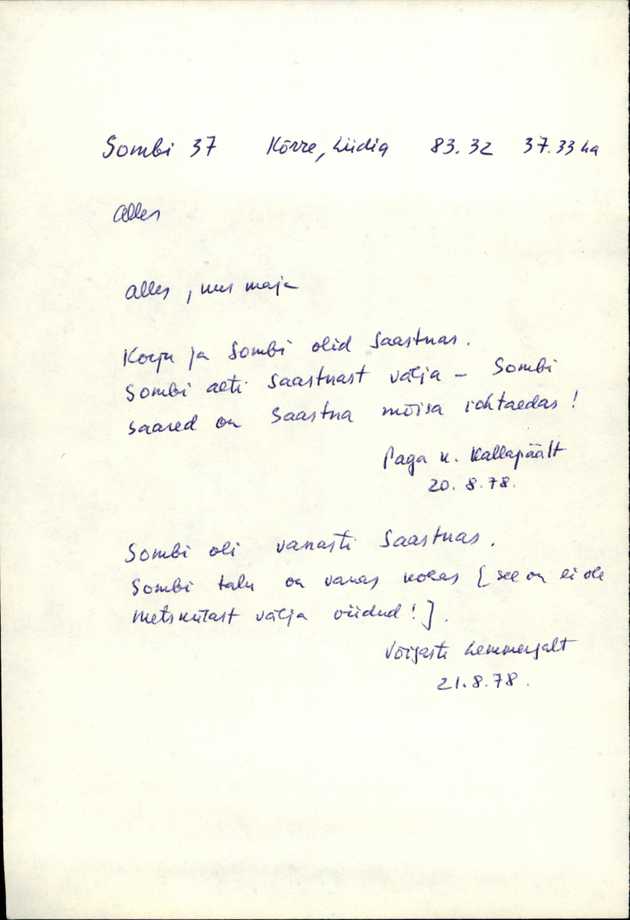 Sombi 37 Kõrre, Liidia 83.32 37.33 ha
alles
alles, uus maja
Korju ja Sombi olid Saastnas.
Sombi aeti Saastnast välja – Sombi
saared on Saastna mõisa rohtaedas!
Paga k. Kallapäält
20.8.78.
Sombi oli vanasti Saastnas.
Sombi talu on vanas kohas [see on ei ole
Metskülast välja viidud!].
Võigaste Lemmerjalt
21.8.78.